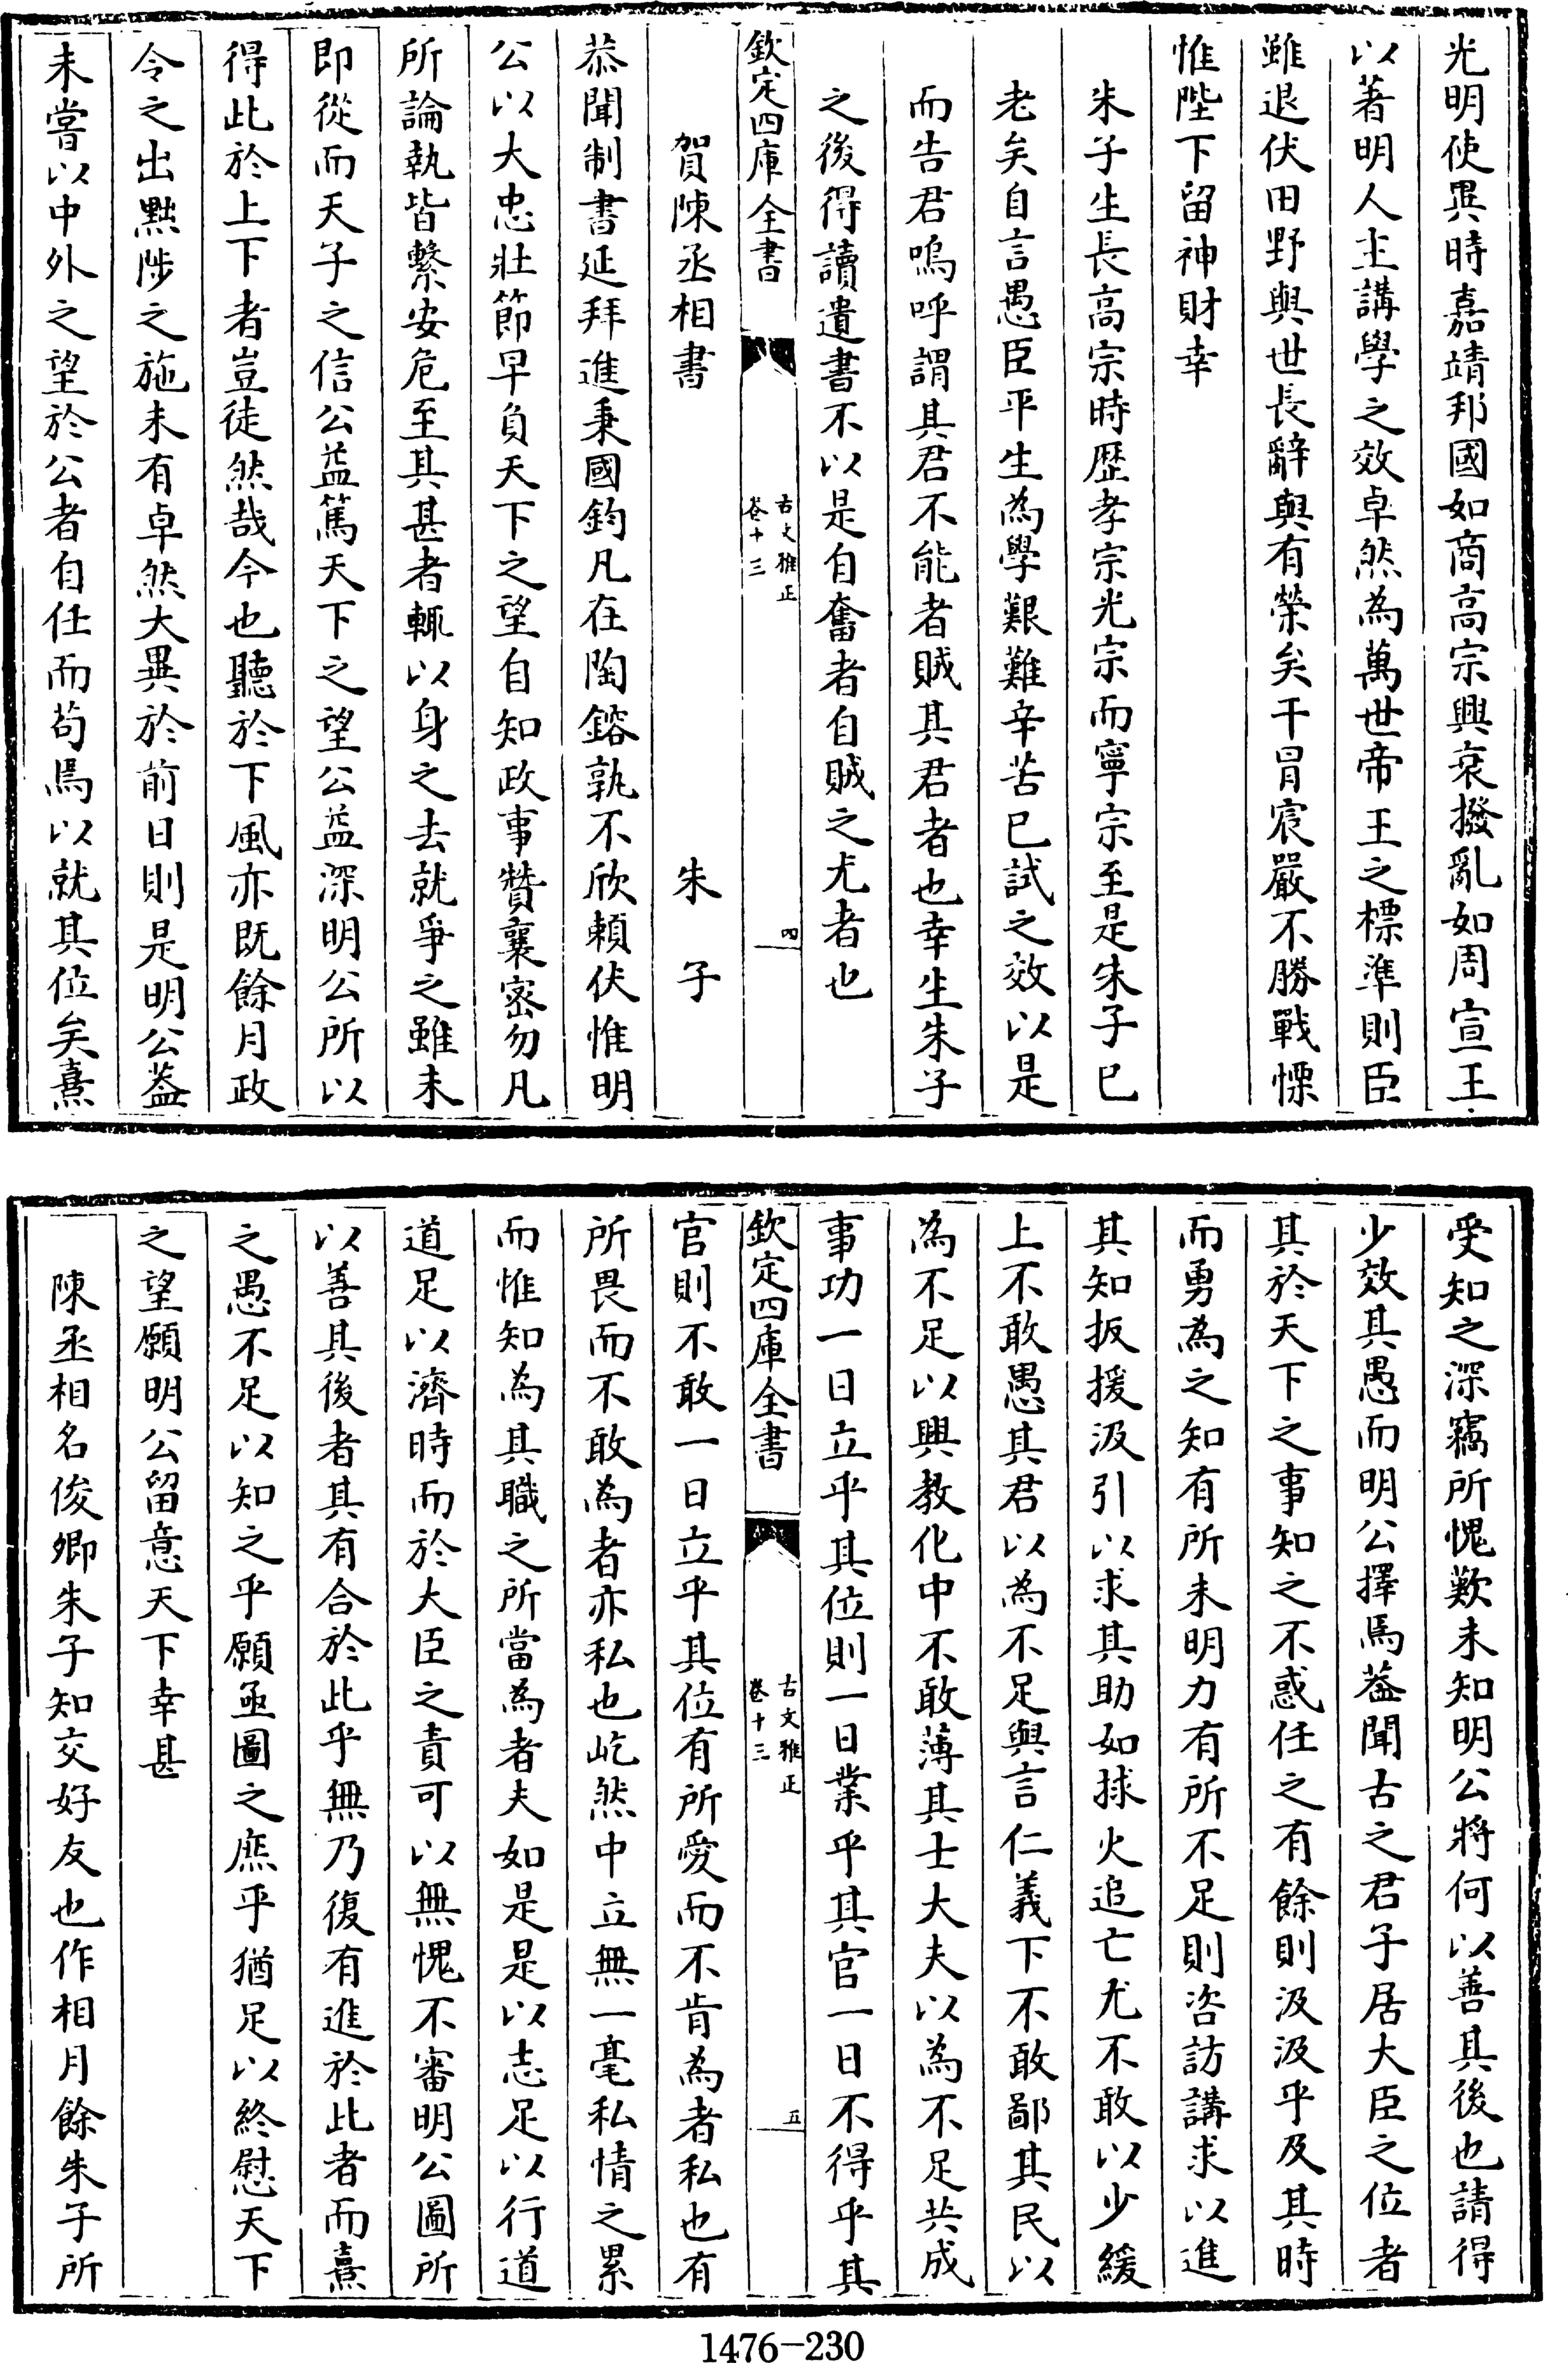 光明使異時嘉靖邦國如商高宗興衰撥亂如周宣王
以著明人主講學之效卓然為萬世帝王之標準則臣
雖退伏田野與世長辭與有榮矣干冒宸嚴不勝戰慄
惟陛下留神財幸
朱子生長高宗時歷孝宗光宗而寧宗至是朱子已
老矣自言愚臣平生為學艱難辛苦已試之效以是
而告君嗚呼謂其君不能者賊其君者也幸生朱子
之後得讀遺書不以是自奮者自賊之尤者也
欽定四庫全書
古文雅正
卷十三
四
賀陳丞相書 朱子
恭聞制書延拜進秉國鈞凡在陶鎔孰不欣賴伏惟明
公以大忠壯節早負天下之望自知政事贊襄密勿凡
所論執皆繫安危至其甚者輒以身之去就爭之雖未
即從而天子之信公益篤天下之望公益深明公所以
得此於上下者豈徒然哉今也聽於下風亦既餘月政
令之出黜陟之施未有卓然大異於前日則是明公葢
未嘗以中外之望於公者自任而苟焉以就其位矣熹
受知之深竊所愧歎未知明公將何以善其後也請得
少效其愚而明公擇焉葢聞古之君子居大臣之位者
其於天下之事知之不惑任之有餘則汲汲乎及其時
而勇為之知有所未明力有所不足則咨訪講求以進
其知扳援汲引以求其助如捄火追亡尤不敢以少緩
上不敢愚其君以為不足與言仁義下不敢鄙其民以
為不足以興教化中不敢薄其士大夫以為不足共成
事功一日立乎其位則一日業乎其官一日不得乎其
欽定四庫全書
古文雅正
卷十三
五
官則不敢一日立乎其位有所愛而不肯為者私也有
所畏而不敢為者亦私也屹然中立無一毫私情之累
而惟知為其職之所當為者夫如是是以志足以行道
道足以濟時而於大臣之責可以無愧不審明公圖所
以善其後者其有合於此乎無乃復有進於此者而熹
之愚不足以知之乎願亟圖之庶乎猶足以終慰天下
之望願明公留意天下幸甚
陳丞相名俊卿朱子知交好友也作相月餘朱子所
1476-230